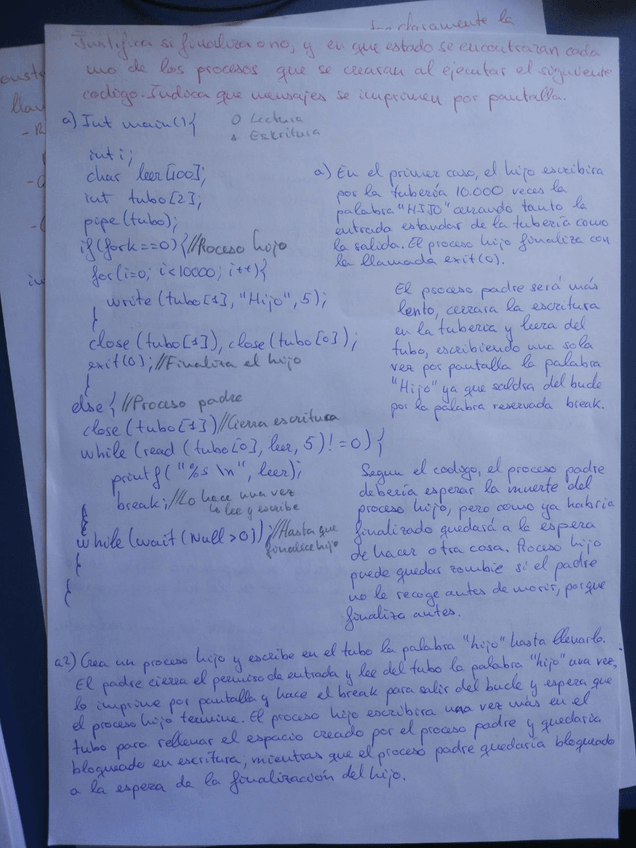 Justifica si finaliza o no, y en que estado se encontraran cada
uno de los procesos que se crearan al ejecutar el siguiente
codigo. Indica que mensajes se imprimen por pantalla.
a) Int main(){
0 Lectura
1 Eskritura
int i;
char leer[100];
int tubo[2];
pipe(tubo);
if(fork==0){//Proceso hijo
for(i=0; i<10000; i++){
write (tubo[1], "Hijo", 5);
}
close (tubo[1]), close (tubo[0]);
exit(0); //Finaliza el hijo
}
else{ //Proceso padre
close (tubo[1]) //Cierra escritura
while (read (tubo[0], leer, 5) != 0) {
printf ("%s \n", leer);
break; //Lo hace una vez
lo lee y escribe
}
while (wait (Null >0)); //Hasta que
finalice hijo
}
}
a) En el primer caso, el hijo escribira
por la tubería 10.000 veces la
palabra "HIJO" cerrando tanto la
entrada estandar de la tubería como
la salida. El proceso hijo finaliza con
la llamada exit(0).
El proceso padre será más
lento, cerrara la escritura
en la tuberia y leera del
tubo, escribiendo una sola
vez por pantalla la palabra
"Hijo" ya que saldra del bucle
por la palabra reservada break.
Segun el codigo, el proceso padre
debería esperar la muerte del
proceso hijo, pero como ya habria
finalizado quedará a la espera
de hacer otra cosa. Proceso hijo
puede quedar zombie si el padre
no le recoge antes de morir, porque
finaliza antes.
a.2) Crea un proceso hijo y escribe en el tubo la palabra "hijo" hasta llenarlo.
El padre cierra el permiso de entrada y lee del tubo la palabra "hijo" una vez,
lo imprime por pantalla y hace el break para salir del bucle y espera que
el proceso hijo termine. El proceso hijo escribira una vez más en el
tubo para rellenar el espacio creado por el proceso padre y quedaria
bloqueado en escritura, mientras que el proceso padre quedaria bloqueado
a la espera de la finalización del hijo.